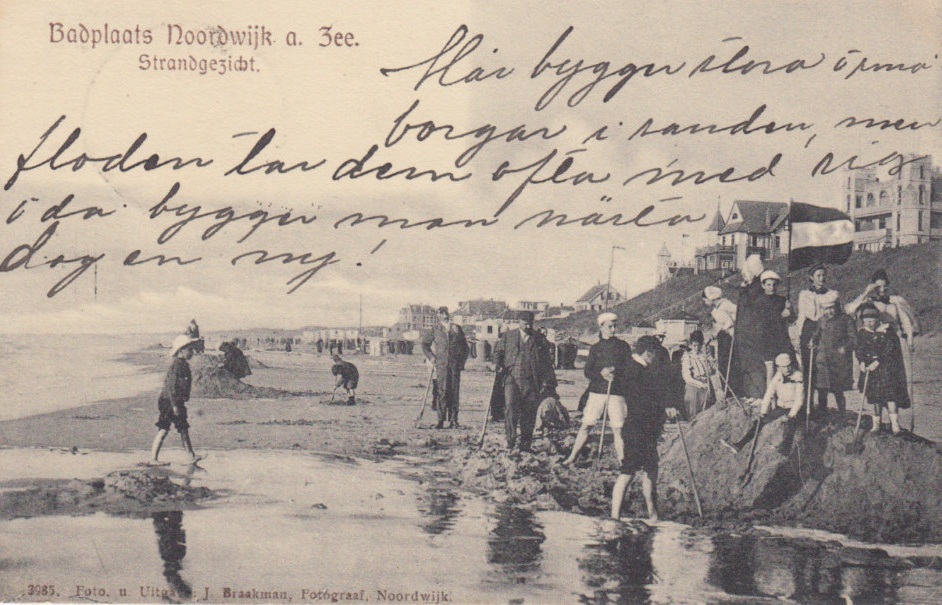 Badplaats Noordwijk a. Zee.
Strandgezicht.
Här bygger stora o små
borgar i sanden, men
floden tar dem ofta med sig
o då bygger man nästa
dag en ny!
3985. Foto. u Uitgave: J. Braakman, Fotograaf, Noordwijk.